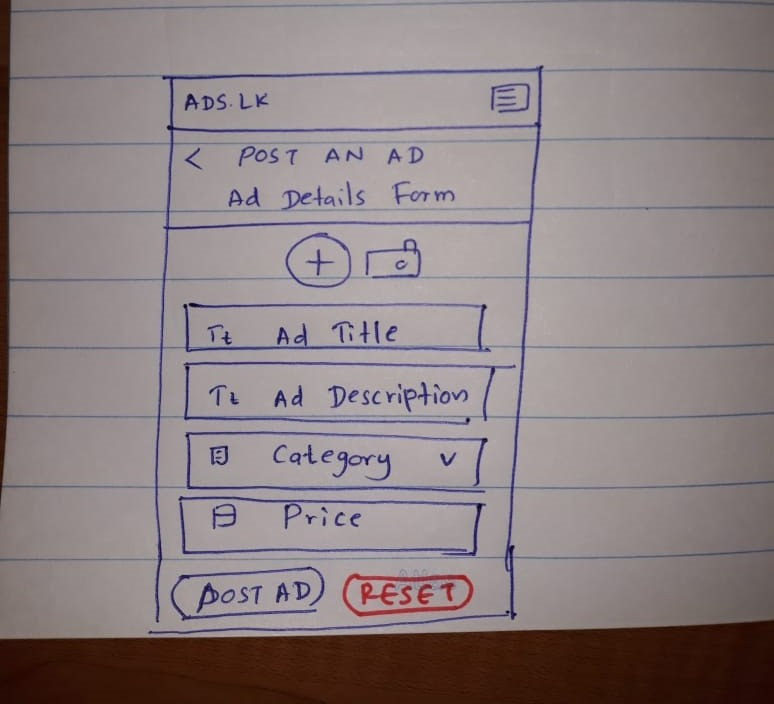 ADS.LK
< POST AN AD
Ad Details Form
+
Tt Ad Title
Tt Ad Description
Category
Price
POST AD RESET